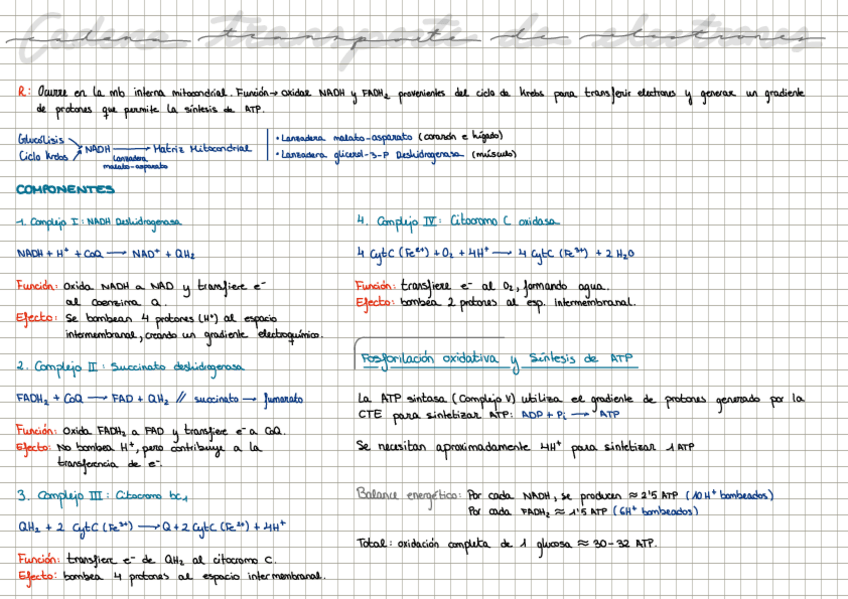 Cadena transporte de electrones
R: Ocurre en la mb interna mitocondrial. Función → oxidar NADH y FADH₂ provenientes del ciclo de Krebs para transferir electrones y generar un gradiente
de protones que permite la síntesis de ATP.
Glucólisis
Ciclo Krebs
NADH → Matriz Mitocondrial
Lanzadera
malato-asparato
• Lanzadera malato-asparato (corazón e hígado)
• Lanzadera glicerol-3-P Deshidrogenasa (músculo)
COMPONENTES
1. Complejo I: NADH Deshidrogenasa
NADH + H⁺ + CoQ → NAD⁺ + QH₂
Función: Oxida NADH a NAD y transfiere e⁻
al coenzima Q.
Efecto: Se bombean 4 protones (H⁺) al espacio
intermembranal, creando un gradiente electroquímico.
2. Complejo II: Succinato deshidrogenasa
FADH₂ + CoQ → FAD + QH₂ // succinato → fumarato
Función: Oxida FADH₂ a FAD y transfiere e⁻ a CoQ.
Efecto: No bombea H⁺, pero contribuye a la
transferencia de e⁻.
3. Complejo III: Citocromo bc₁
QH₂ + 2 CytC (Fe³⁺) → Q + 2 CytC (Fe²⁺) + 4H⁺
Función: transfiere e⁻ de QH₂ al citocromo C.
Efecto: bombea 4 protones al espacio intermembranal.
4. Complejo IV: Citocromo C oxidasa
4 CytC (Fe²⁺) + O₂ + 4H⁺ → 4 CytC (Fe³⁺) + 2 H₂O
Función: transfiere e⁻ al O₂, formando agua.
Efecto: bombea 2 protones al esp. intermembranal.
Fosforilación oxidativa y Síntesis de ATP
La ATP sintasa (Complejo V) utiliza el gradiente de protones generado por la
CTE para sintetizar ATP: ADP + Pi → ATP
Se necesitan aproximadamente 4H⁺ para sintetizar 1 ATP
Balance energético: Por cada NADH, se producen ≈ 2'5 ATP (10H⁺ bombeados)
Por cada FADH₂ ≈ 1'5 ATP (6H⁺ bombeados)
Total: oxidación completa de 1 glucosa ≈ 30-32 ATP.